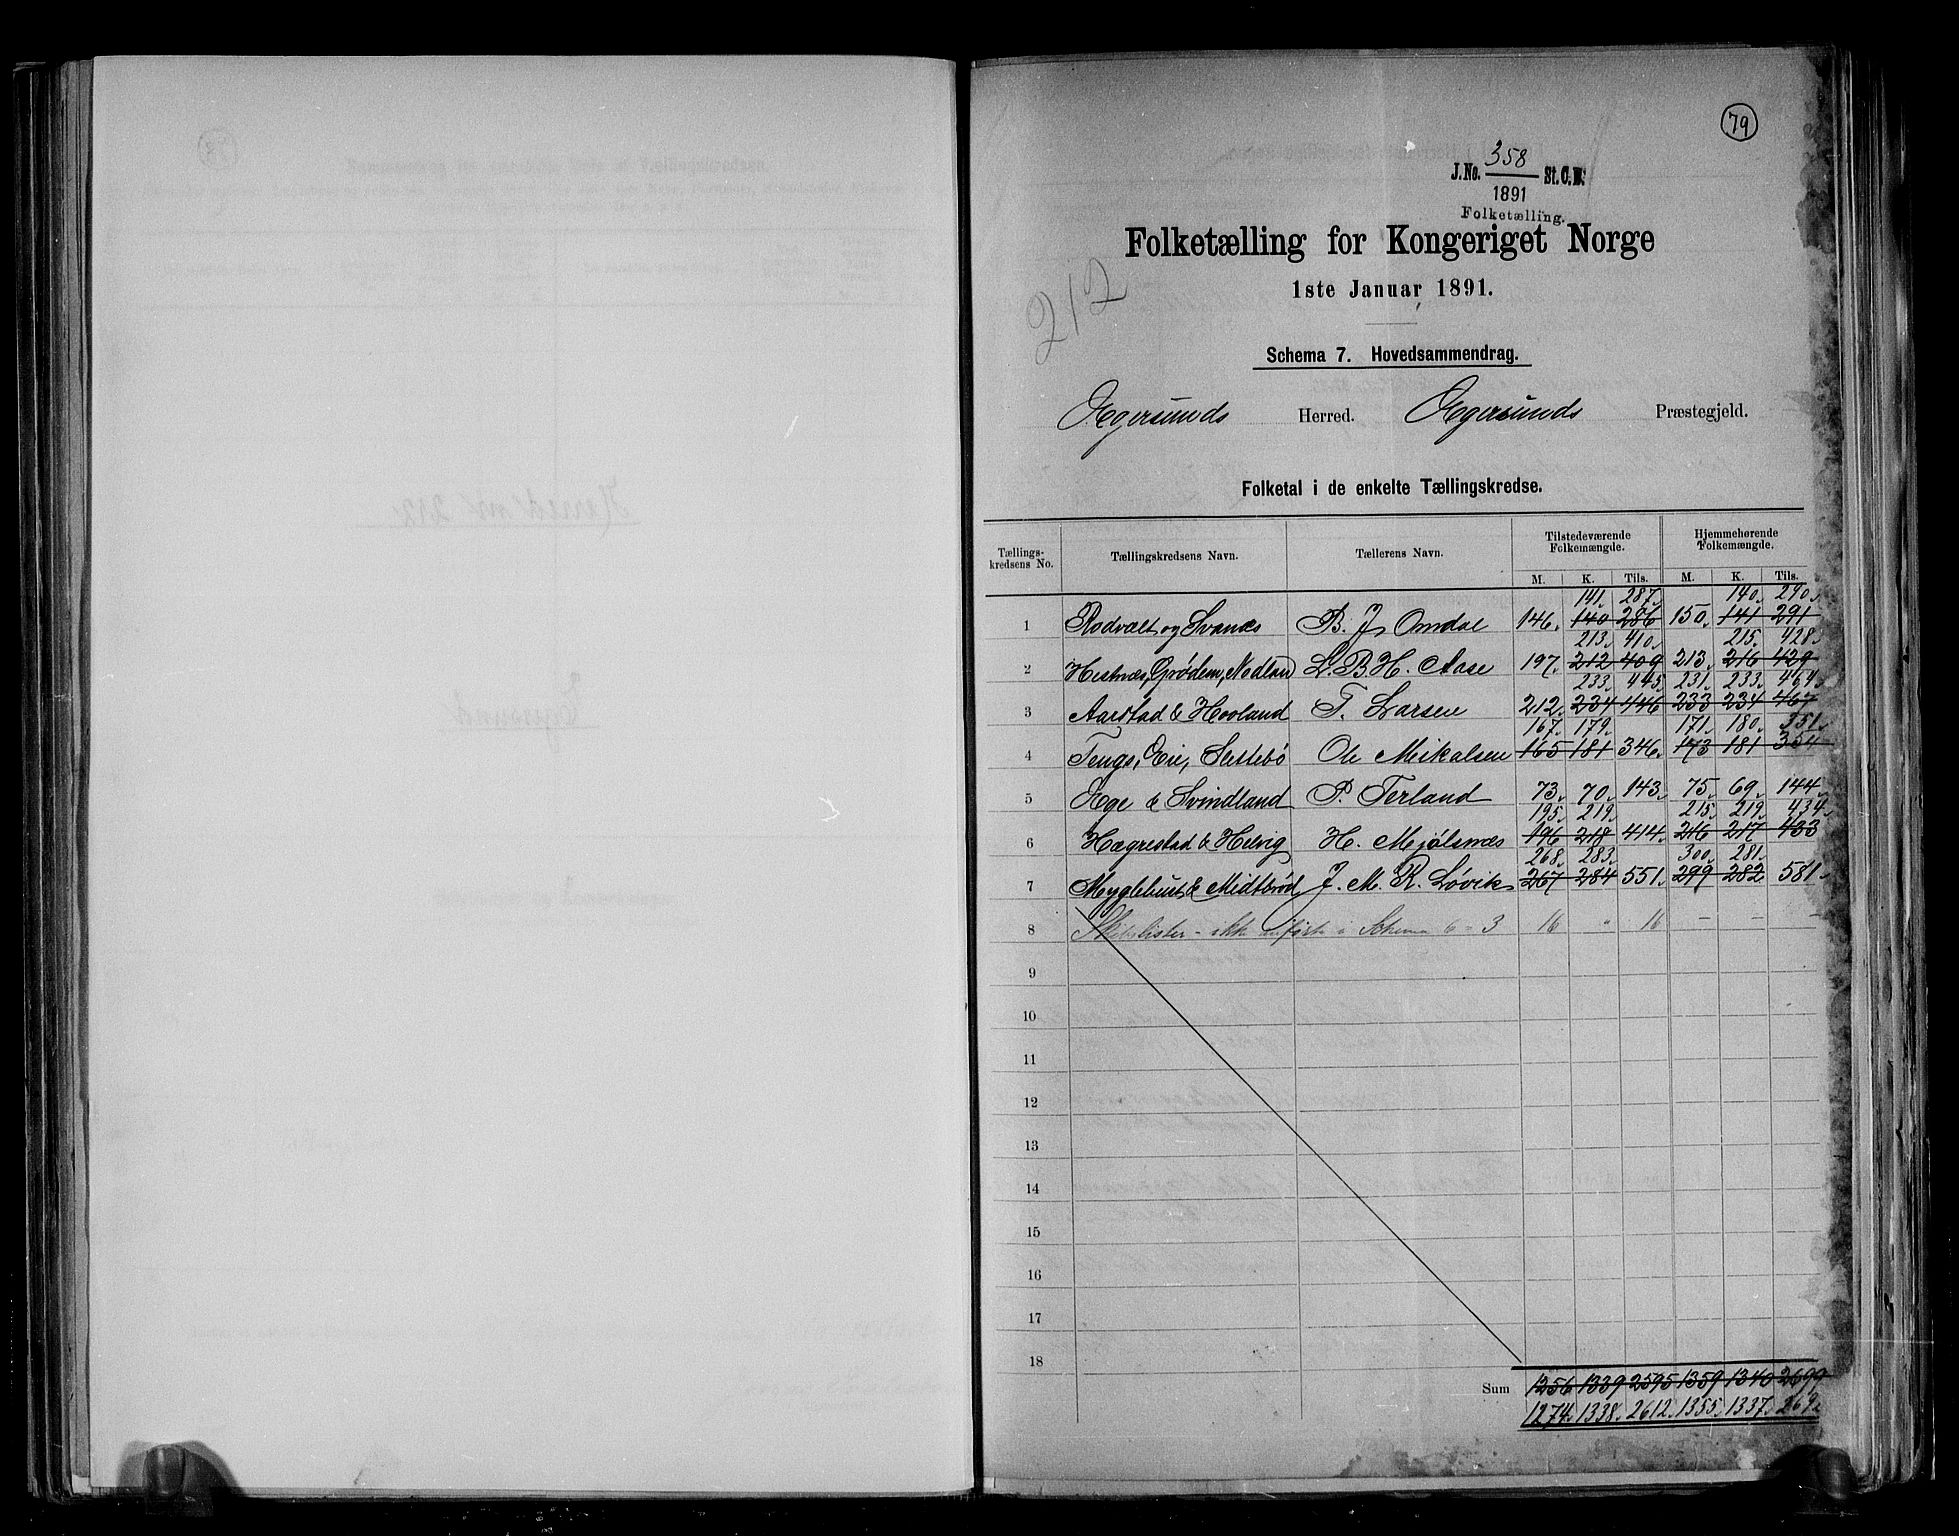 79
J.No. 358 St.C.B.
1891
Folketælling.
Folketælling for Kongeriget Norge
1ste Januar 1891.
212
Schema 7. Hovedsammendrag.
Egersunds Herred. Egersunds Præstegjeld.
Folketal i de enkelte Tællingskredse.
Tællingskredsens No. Tællingskredsens Navn. Tællerens Navn. Tilstedeværende Folkemængde. Hjemmehørende Folkemængde.
M. K. Tils. M. K. Tils.
141. 287. 140. 290.
1 Rodvalt og Svanæs B. J. Omdal 146. 140 286 150. 141 291
213. 410. 215. 428.
2 Hestnæs, Grødem, Nodland L. B. H. Aase 197. 212 409 213. 216 429
233. 445. 231. 233. 464.
3 Aarstad & Hovland T. Larsen 212. 234 446 233 234 467
167. 179. 171. 180. 351.
4 Tengs, Eie, Slettebö Ole Mikalsen 165 181 346. 173 181 354
5 Ege & Svindland P. Terland 73. 70. 143. 75. 69. 144.
195. 219. 215. 219. 434.
6 Hægrestad & Helvig H. Mjølsnæs 196 218 414. 216 217 433
268. 283. 300. 281.
7 Myglebust & Midtbrød J. M. R. Løvik 267 284 551. 299 282 581.
8 Skibslister - ikke anført i Schema 6 = 3 16 " 16 - - -
9
10
11
12
13
14
15
16
17
18
Sum 1256 1339 2595 1359 1340 2699
1274. 1338. 2612. 1355. 1337. 269
Herred nr 212
Egersund